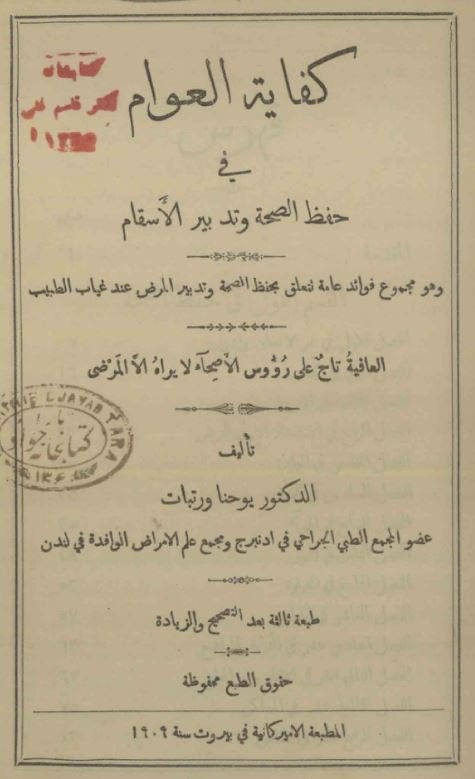 كفاية العوام
في
حفظ الصحة وتدبير الأسقام
وهو مجموع فوائد عامة لتعلق بحفظ الصحة وتدبير المرض عند غياب الطبيب
العافيةُ تاجٌ على رُؤُوس الأصِحآء لا يراهُ الاَّ المَرْضى
تأليف
الدكتور يوحنا ورتبات
عضو المجمع الطبي الجراحي في ادنبرج ومجمع علم الامراض الوافدة في لندن
طبعة ثالثة بعد التصحيح والزيادة
حقوق الطبع محفوظة
المطبعة الاميركانية في بيروت سنة ١٩٠٩
كتابخانه
TARA
كتابخانه